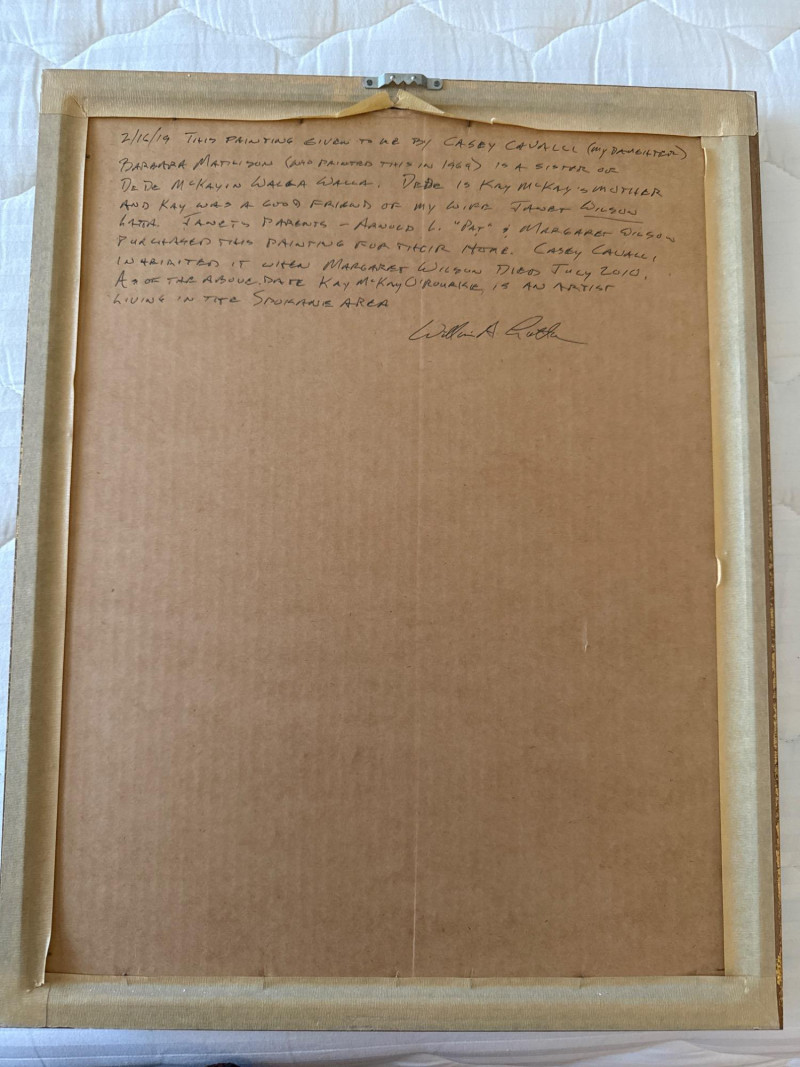 2/16/19 THIS PAINTING GIVEN TO ME BY CASEY CAVALLI (MY DAUGHTER)
BARBARA MATHISON (WHO PAINTED THIS IN 1969) IS A SISTER OF
DEDE MCKAY IN WALLA WALLA. DEDE IS KAY MCKAY'S MOTHER
AND KAY WAS A GOOD FRIEND OF MY WIFE JANET WILSON
JANET'S PARENTS – ARNOLD L. "PAT" & MARGARET WILSON
PURCHASED THIS PAINTING FOR THEIR HOME. CASEY CAVALLI
INHERITED IT WHEN MARGARET WILSON DIED JULY 2010.
AS OF THE ABOVE DATE KAY MCKAY O'ROURKE IS AN ARTIST
LIVING IN THE SPOKANE AREA
William A.